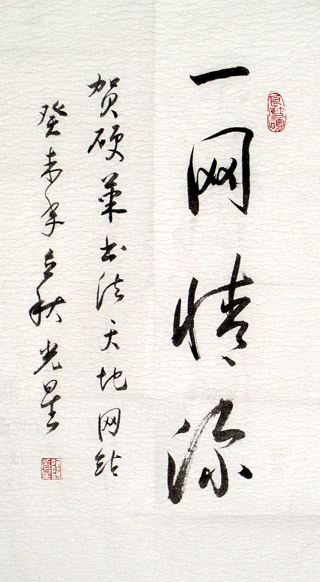 一网情深
贺硬笔书法天地网站
癸未年立秋光星